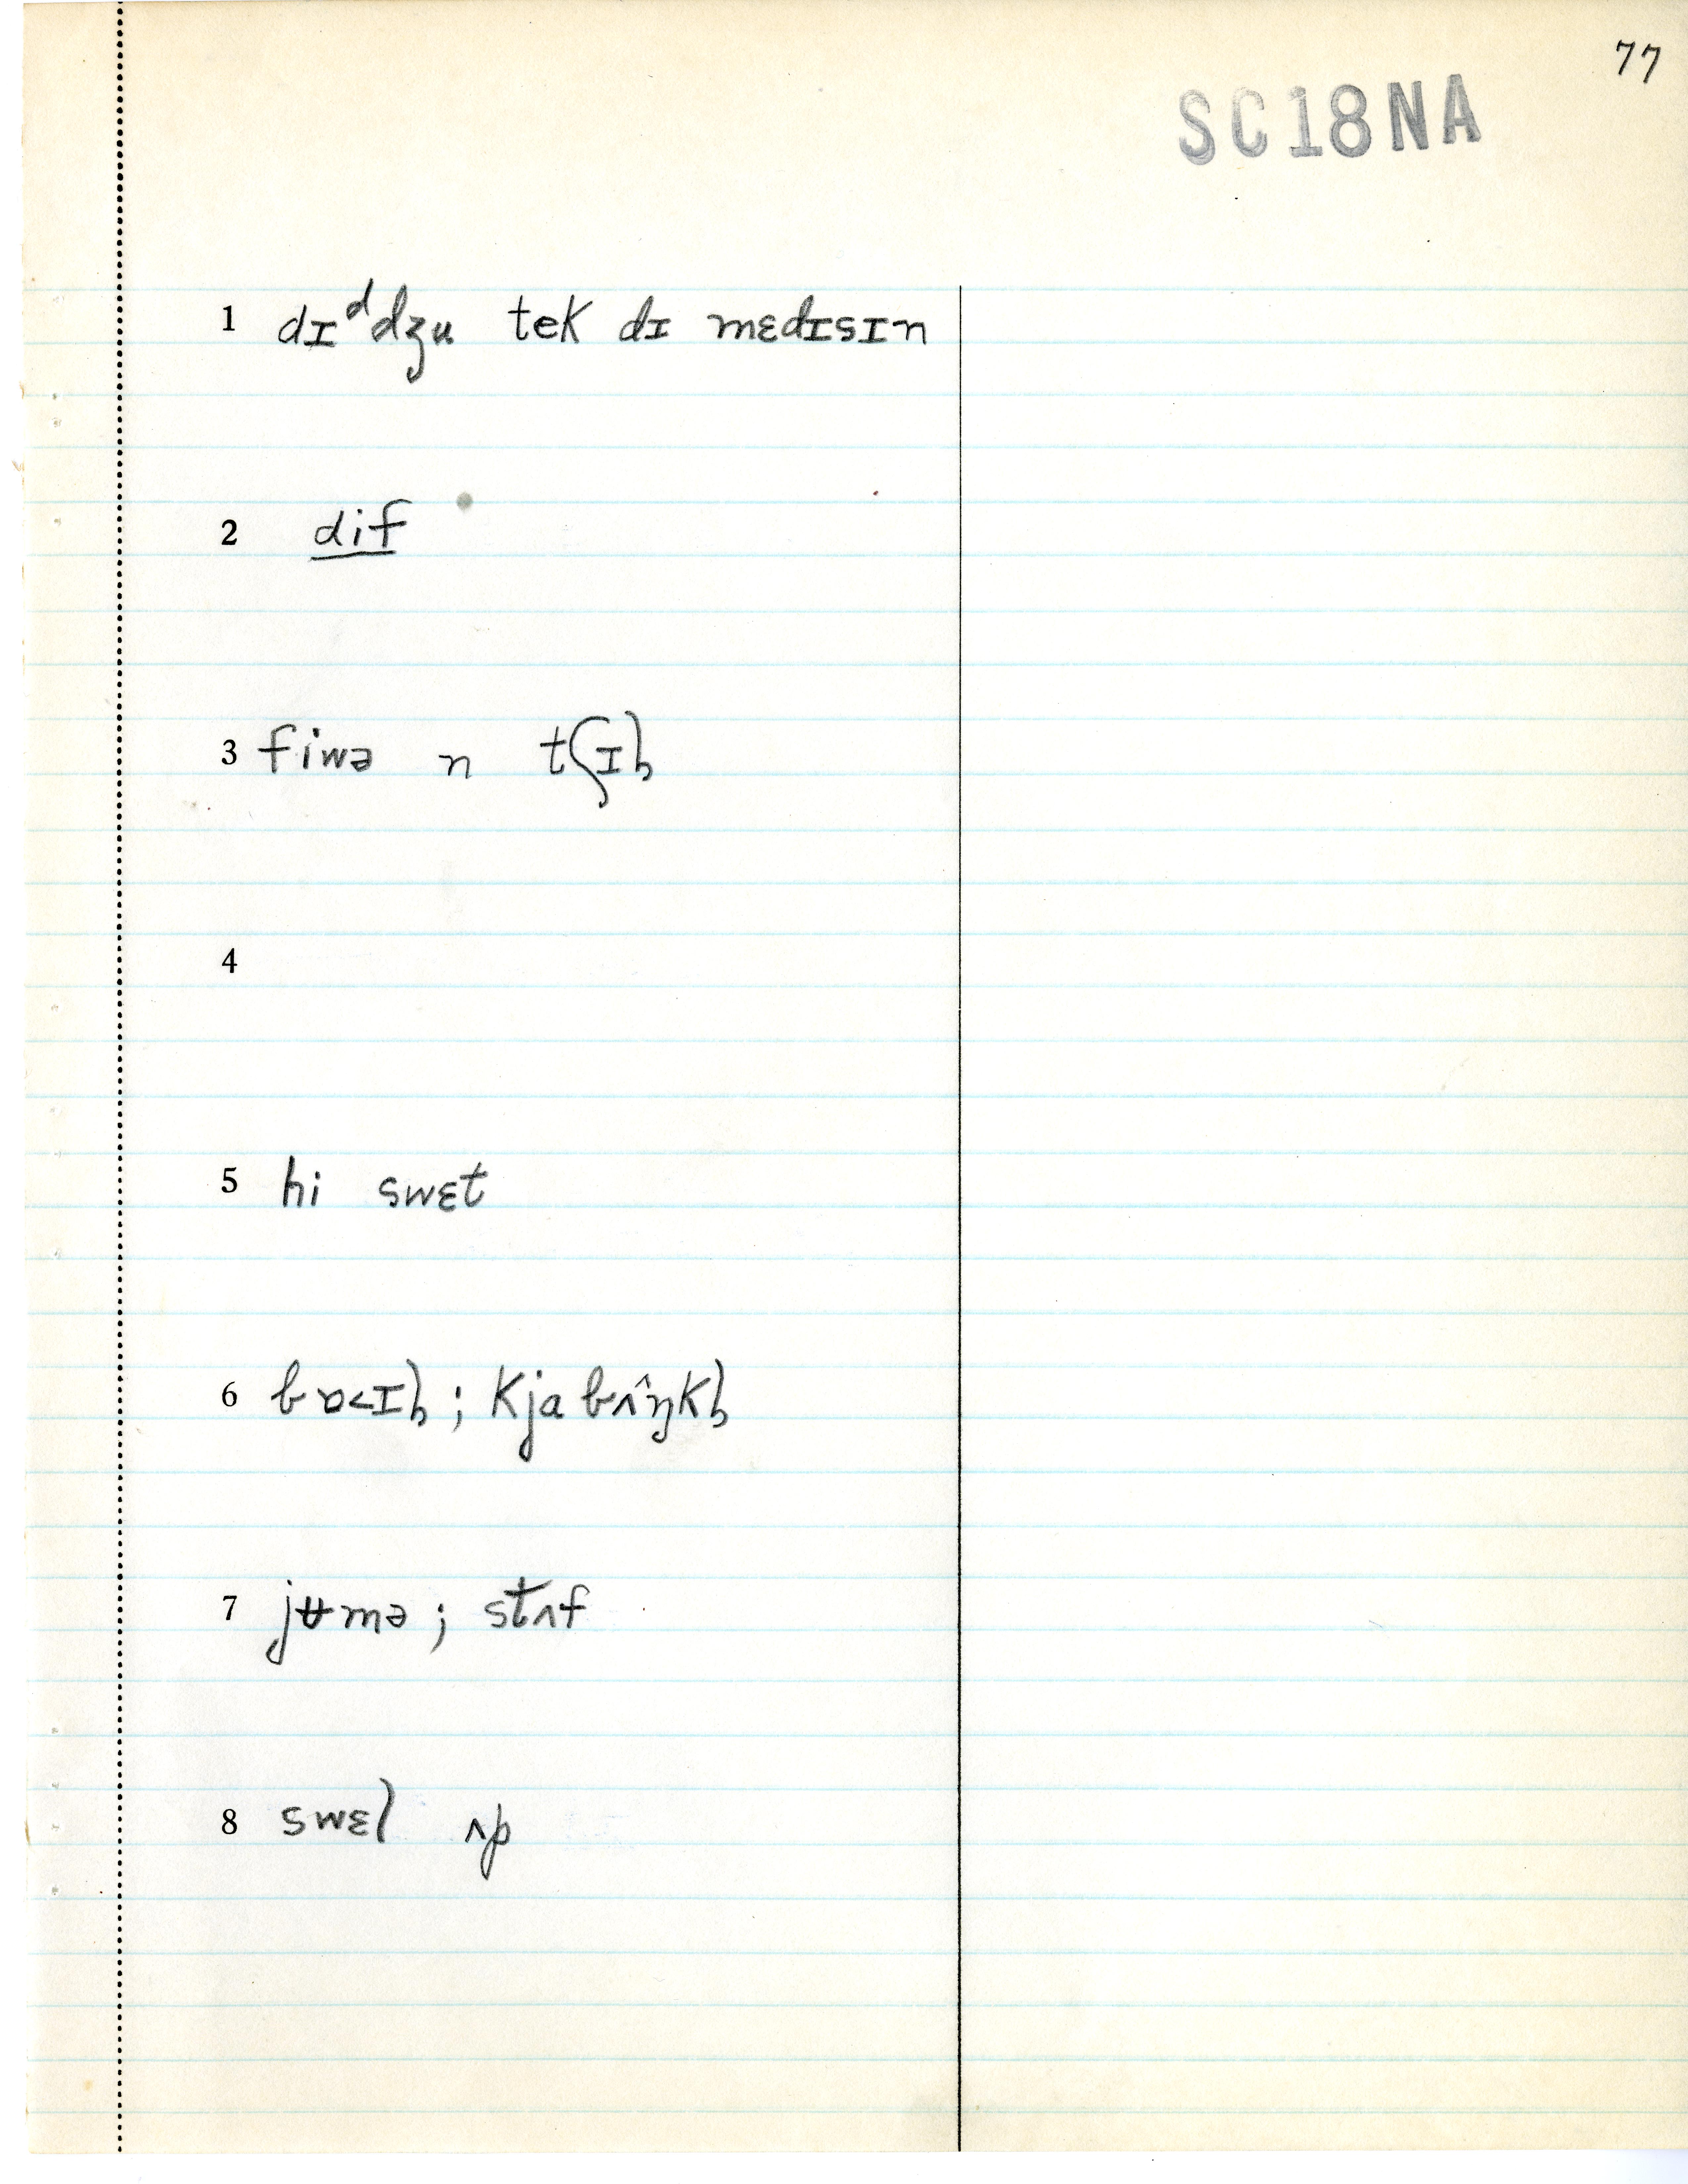 77
SC18NA
1 dɪᵈdʒu tek dɪ mɛdɪsɪn
2 dif
3 fiwə n tʃɪl
4
5 hi swɛt
6 bɒ˂ɪl ; kjabʌ̂ŋkl
7 jʉmə ; stʌf
8 swɛl ʌp